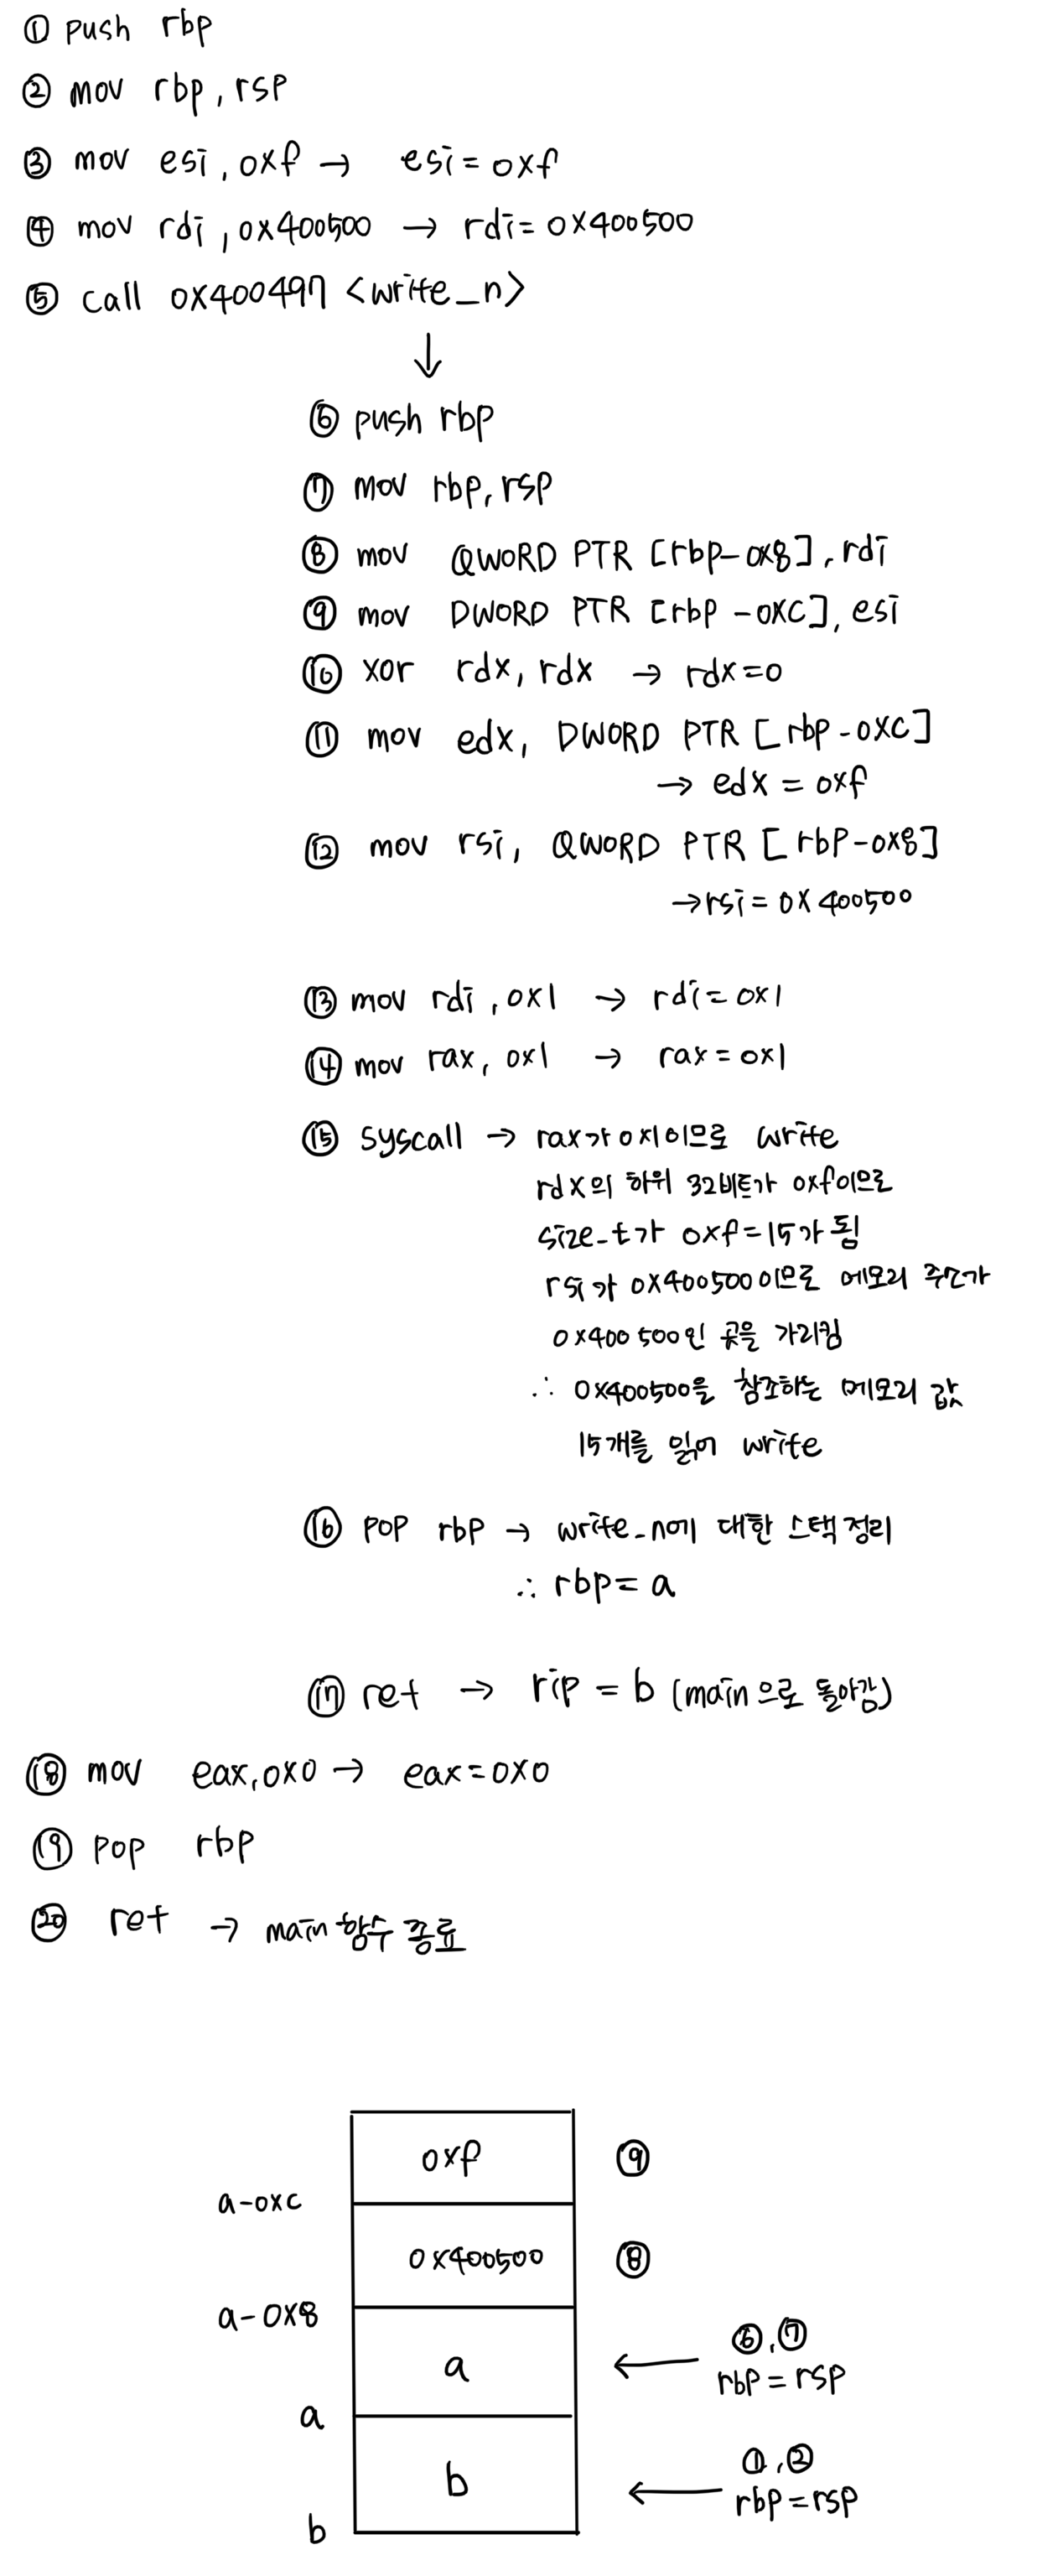 ① push rbp
② mov rbp, rsp
③ mov esi, 0xf → esi = 0xf
④ mov rdi, 0x400500 → rdi = 0x400500
⑤ call 0x400497 <write_n>
↓
⑥ push rbp
⑦ mov rbp, rsp
⑧ mov QWORD PTR [rbp-0x8], rdi
⑨ mov DWORD PTR [rbp-0xC], esi
⑩ xor rdx, rdx → rdx=0
⑪ mov edx, DWORD PTR [rbp-0xC]
→ edx = 0xf
⑫ mov rsi, QWORD PTR [rbp-0x8]
→ rsi = 0x400500
⑬ mov rdi, 0x1 → rdi = 0x1
⑭ mov rax, 0x1 → rax = 0x1
⑮ syscall → rax가 0x1이므로 write
rdx의 하위 32비트가 0xf이므로
size_t가 0xf=15가 됨
rsi가 0x400500이므로 메모리 주소가
0x400500인 곳을 가리킴
∴ 0x400500을 참조하는 메모리 값
15개를 읽어 write
⑯ pop rbp → write_n에 대한 스택 정리
∴ rbp = a
⑰ ret → rip = b (main으로 돌아감)
⑱ mov eax, 0x0 → eax = 0x0
⑲ pop rbp
⑳ ret → main 함수 종료
0xf ⑨
a-0xc
0x400500 ⑧
a-0x8
a ← ⑥, ⑦
rbp = rsp
a
b ← ①, ②
rbp = rsp
b